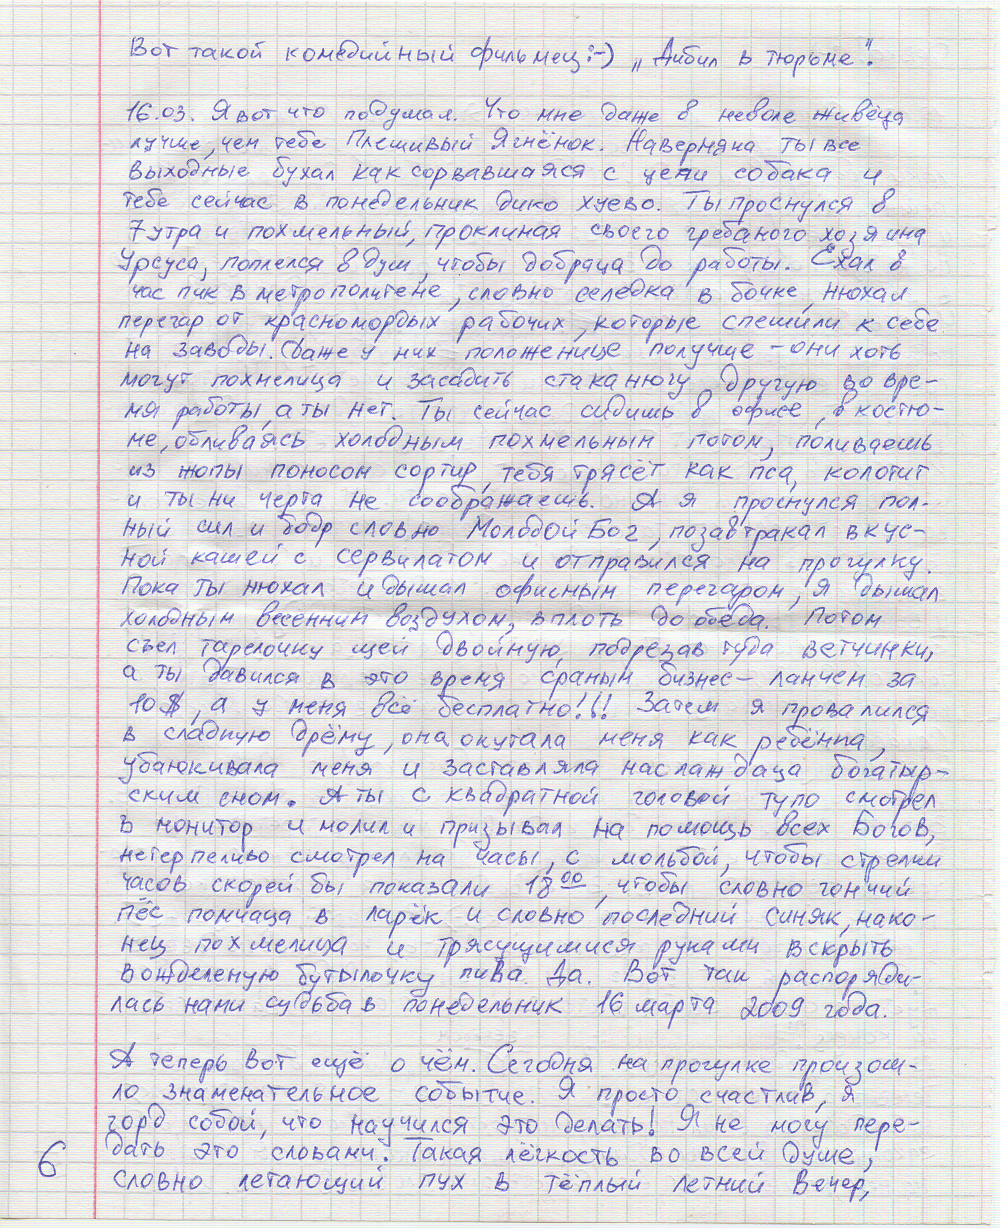 Вот такой комедийный фильмец:-) „Дибил в тюрьме".
16.03. Я вот что подумал. Что мне даже в неволе живёца
лучше, чем тебе Плешивый Ягнёнок. Наверняка ты все
выходные бухал как сорвавшаяся с цепи собака и
тебе сейчас в понедельник дико хуево. Ты проснулся в
7 утра и похмельный, проклиная своего гребаного хозяина
Урсуса, поплелся в душ, чтобы добраца до работы. Ехал в
час пик в метрополитене, словно селедка в бочке, нюхал
перегар от красномордых рабочих, которые спешили к себе
на заводы. Даже у них положеnице получше – они хоть
могут похмелица и засадить стаканюгу, другую во вре-
мя работы, а ты нет. Ты сейчас сидишь в офисе, в костю-
ме, обливаясь холодным похмельным потом, поливаешь
из жопы поносом сортир, тебя трясёт как пса, колотит
и ты ни черта не соображаешь. А я проснулся пол-
ный сил и бодр словно Молодой Бог, позавтракал вкус-
ной кашей с сервилатом и отправился на прогулку.
Пока ты нюхал и дышал офисным перегаром, я дышал
холодным весенним воздухом, вплоть до обеда. Потом
съел тарелочку щей двойную, подрезав туда ветчинки,
а ты давился в это время сраным бизнес – ланчем за
10$, а у меня всё бесплатно!!! Затем я провалился
в сладкую дрёму, она окутала меня как ребёнка,
убаюкивала меня и заставляла наслаждаца богатыр-
ским сном. А ты с квадратной головой тупо смотрел
в монитор и молил и призывал на помощь всех Богов,
нетерпеливо смотрел на часы, с мольбой, чтобы стрелки
часов скорей бы показали 18⁰⁰, чтобы словно гончий
пёс помчаца в ларёк и словно последний синяк, нако-
нец похмелица и трясущимися руками вскрыть
вожделеную бутылочку пива. Да. Вот так распоряди-
лась нами судьба в понедельник 16 марта 2009 года.
А теперь вот ещё о чём. Сегодня на прогулке произош-
ло знаменательное событие. Я просто счастлив, я
горд собой, что научился это делать! Я не могу пере-
дать это словами. Такая лёгкость во всей душе,
словно летающий пух в тёплый летний вечер,
6